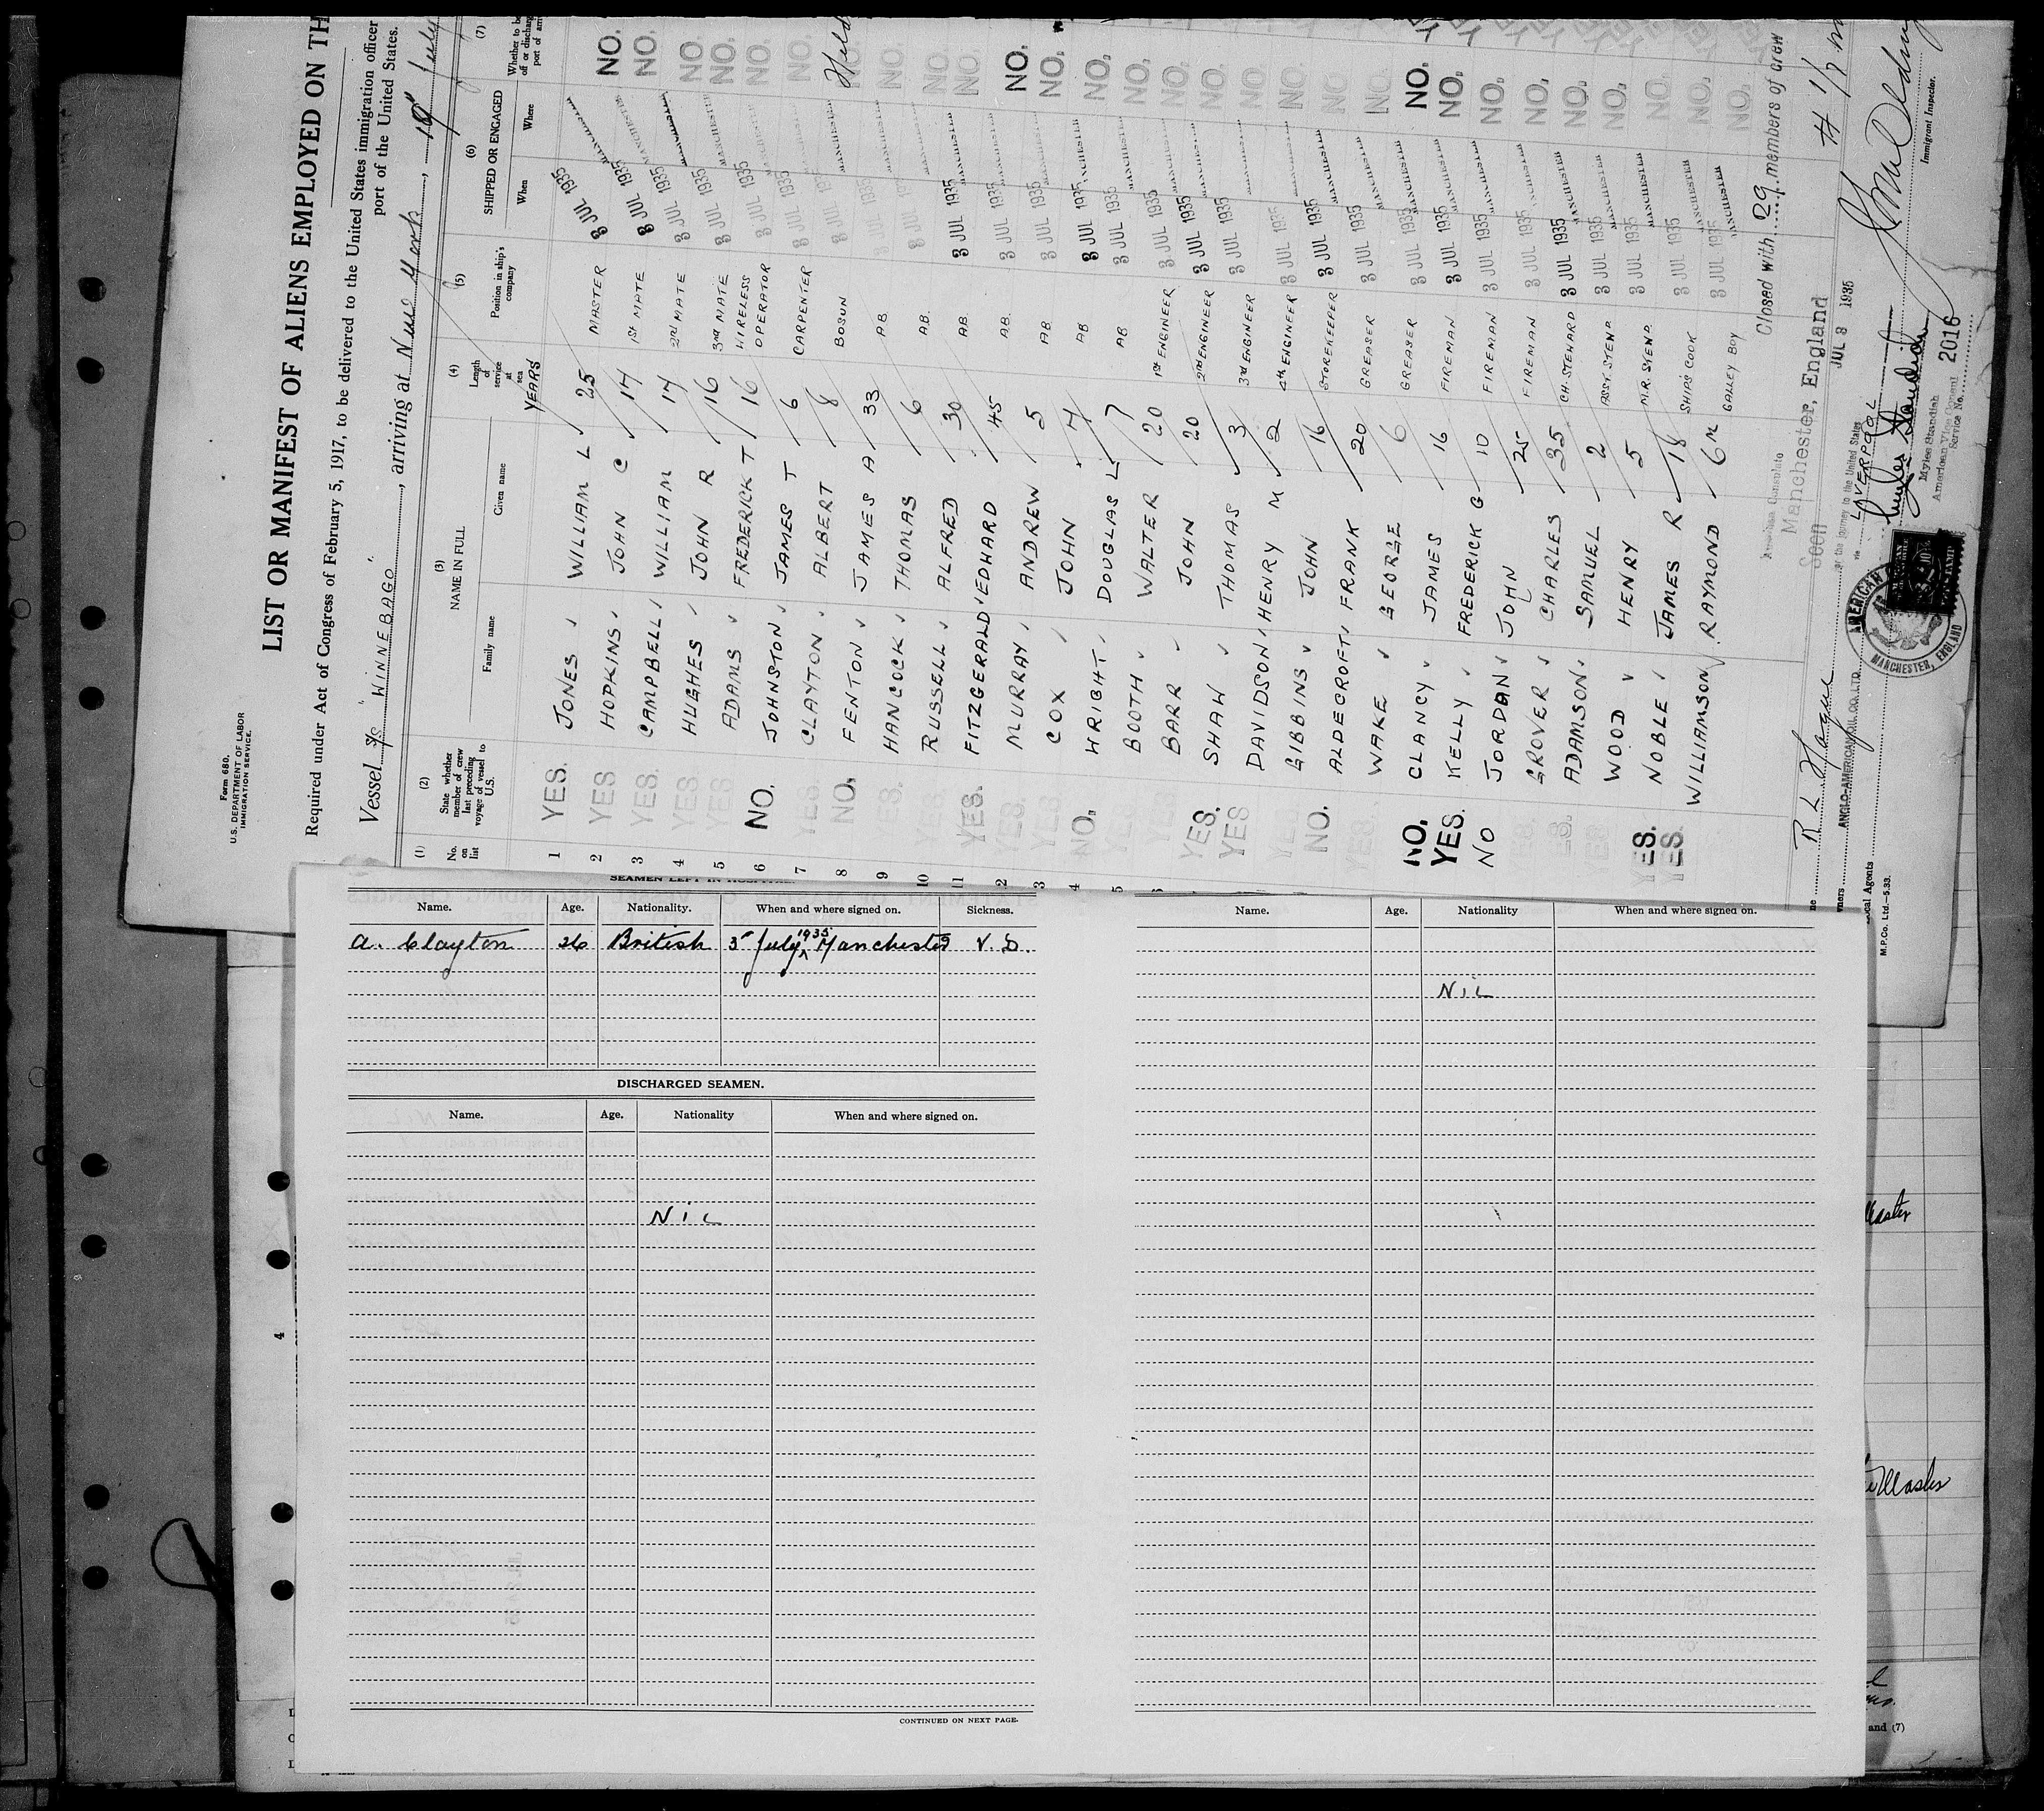 Form 680.
U. S. DEPARTMENT OF LABOR
IMMIGRATION SERVICE.
LIST OR MANIFEST OF ALIENS EMPLOYED ON TH
Required under Act of Congress of February 5, 1917, to be delivered to the United States immigration officer
port of the United States.
Vessel S/S "WINNEBAGO", arriving at New York, 19" July
(1) (2) (3) (4) (5) (6) (7)
No. on list
State whether member of crew last preceding voyage of vessel to U.S.
NAME IN FULL
Family name Given name
Length of service at sea
YEARS
Position in ship's company
SHIPPED OR ENGAGED
When Where
Whether to be
off or discharg
port of arri
1 YES. JONES WILLIAM L 25 MASTER 3 JUL 1935 MANCHESTER NO.
2 YES HOPKINS JOHN C 14 1st MATE 3 JUL 1935 MANCHESTER NO.
3 YES. CAMPBELL WILLIAM 14 2nd MATE 3 JUL 1935 MANCHESTER NO.
4 YES. HUGHES JOHN R 16 3rd MATE 3 JUL 1935 MANCHESTER NO.
5 YES. ADAMS FREDERICK T 16 WIRELESS OPERATOR 3 JUL 1935 MANCHESTER NO.
6 NO. JOHNSTON JAMES T 6 CARPENTER 3 JUL 1935 MANCHESTER NO.
7 YES. CLAYTON ALBERT 8 BOSUN 3 JUL 1935 MANCHESTER NO. Held
8 NO. FENTON JAMES A 33 A.B. 3 JUL 1935 MANCHESTER NO.
9 YES. HANCOCK THOMAS 6 A.B. 3 JUL 1935 MANCHESTER NO.
10 RUSSELL ALFRED 30 A.B. 3 JUL 1935 MANCHESTER NO.
11 YES. FITZGERALD EDWARD 45 A.B. 3 JUL 1935 MANCHESTER NO.
2 YES. MURRAY ANDREW 5 A.B. 3 JUL 1935 MANCHESTER NO.
3 YES. COX JOHN 4 AB 3 JUL 1935 MANCHESTER NO.
4 NO. WRIGHT DOUGLAS L 7 AB 3 JUL 1935 MANCHESTER NO.
5 YES. BOOTH WALTER 20 1st ENGINEER 3 JUL 1935 MANCHESTER NO.
YES. BARR JOHN 20 2nd ENGINEER 3 JUL 1935 MANCHESTER NO.
YES. SHAW THOMAS 3 3rd ENGINEER 3 JUL 1935 MANCHESTER NO.
YES DAVIDSON HENRY M 2 4th ENGINEER 3 JUL 1935 MANCHESTER NO.
YES. GIBBINS JOHN 16 STOREKEEPER 3 JUL 1935 MANCHESTER NO.
NO. ALDECROFT FRANK 20 GREASER 3 JUL 1935 MANCHESTER NO.
YES. WAKE GEORGE 6 GREASER 3 JUL 1935 MANCHESTER NO.
NO. CLANCY JAMES 16 FIREMAN 3 JUL 1935 MANCHESTER NO.
YES. KELLY FREDERICK G 10 FIREMAN 3 JUL 1935 MANCHESTER NO.
NO JORDAN JOHN 25 FIREMAN 3 JUL 1935 MANCHESTER NO.
YES. GROVER CHARLES 35 CH. STEWARD 3 JUL 1935 MANCHESTER NO.
YES. ADAMSON SAMUEL 2 ASST. STEWD. 3 JUL 1935 MANCHESTER NO.
YES WOOD HENRY 5 M.R. STEWD. 3 JUL 1935 MANCHESTER NO.
YES. NOBLE JAMES R 18 SHIPS COOK 3 JUL 1935 MANCHESTER NO.
YES. WILLIAMSON RAYMOND 6 M GALLEY BOY 3 JUL 1935 MANCHESTER NO.
Closed with 29 members of crew
American Consulate
Manchester, England
Seen JUL 3 1935
the journey to the United States
via LIVERPOOL
Myles Standish
Myles Standish
American Vice Consul
Service No. 2016
AMERICAN
MANCHESTER, ENGLAND
Immigrant Inspector.
R L Hague
ANGLO-AMERICAN OIL CO. LTD.
wners
ocal Agents
M.P.Co. Ltd.-5.33.
SEAMEN LEFT IN HOSPITAL
Name. Age. Nationality. When and where signed on. Sickness.
A. Clayton 26 British 3rd July 1935 Manchester V. D.
DISCHARGED SEAMEN.
Name. Age. Nationality When and where signed on.
NIL
CONTINUED ON NEXT PAGE.
Name. Age. Nationality When and where signed on.
NIL
4
Master
Master
and (7)